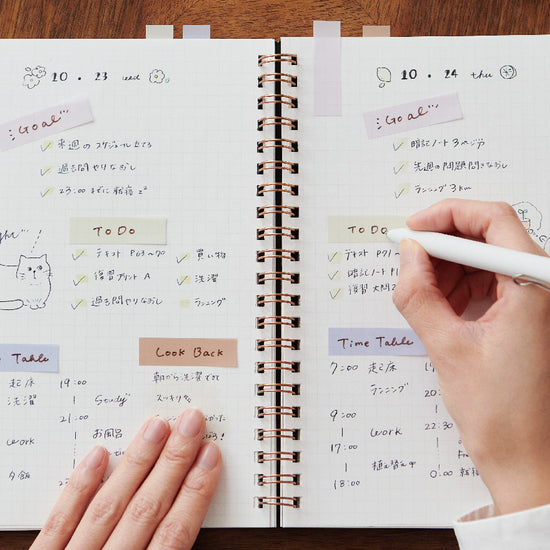 10 . 23 wed
Goal
来週のスケジュール立てる
過去問やりなおし
23:00までに就寝
To Do
テキスト P63〜70
復習プリント A
過去問やりなおし
買い物
洗濯
ランニング
Time Table
起床
洗濯
work
夕飯
19:00
21:00
Study
お風呂
Look Back
朝から洗濯できて
スッキリ
10 . 24 thu
Goal
暗記ノート 3ページ
先週の問題 問きなおし
ランニング 3km
To Do
テキスト P71〜
暗記ノート
復習
Time Table
7:00 起床
ランニング
9:00
work
17:00
植え替え
18:00
19:
20:
22:30
0:00